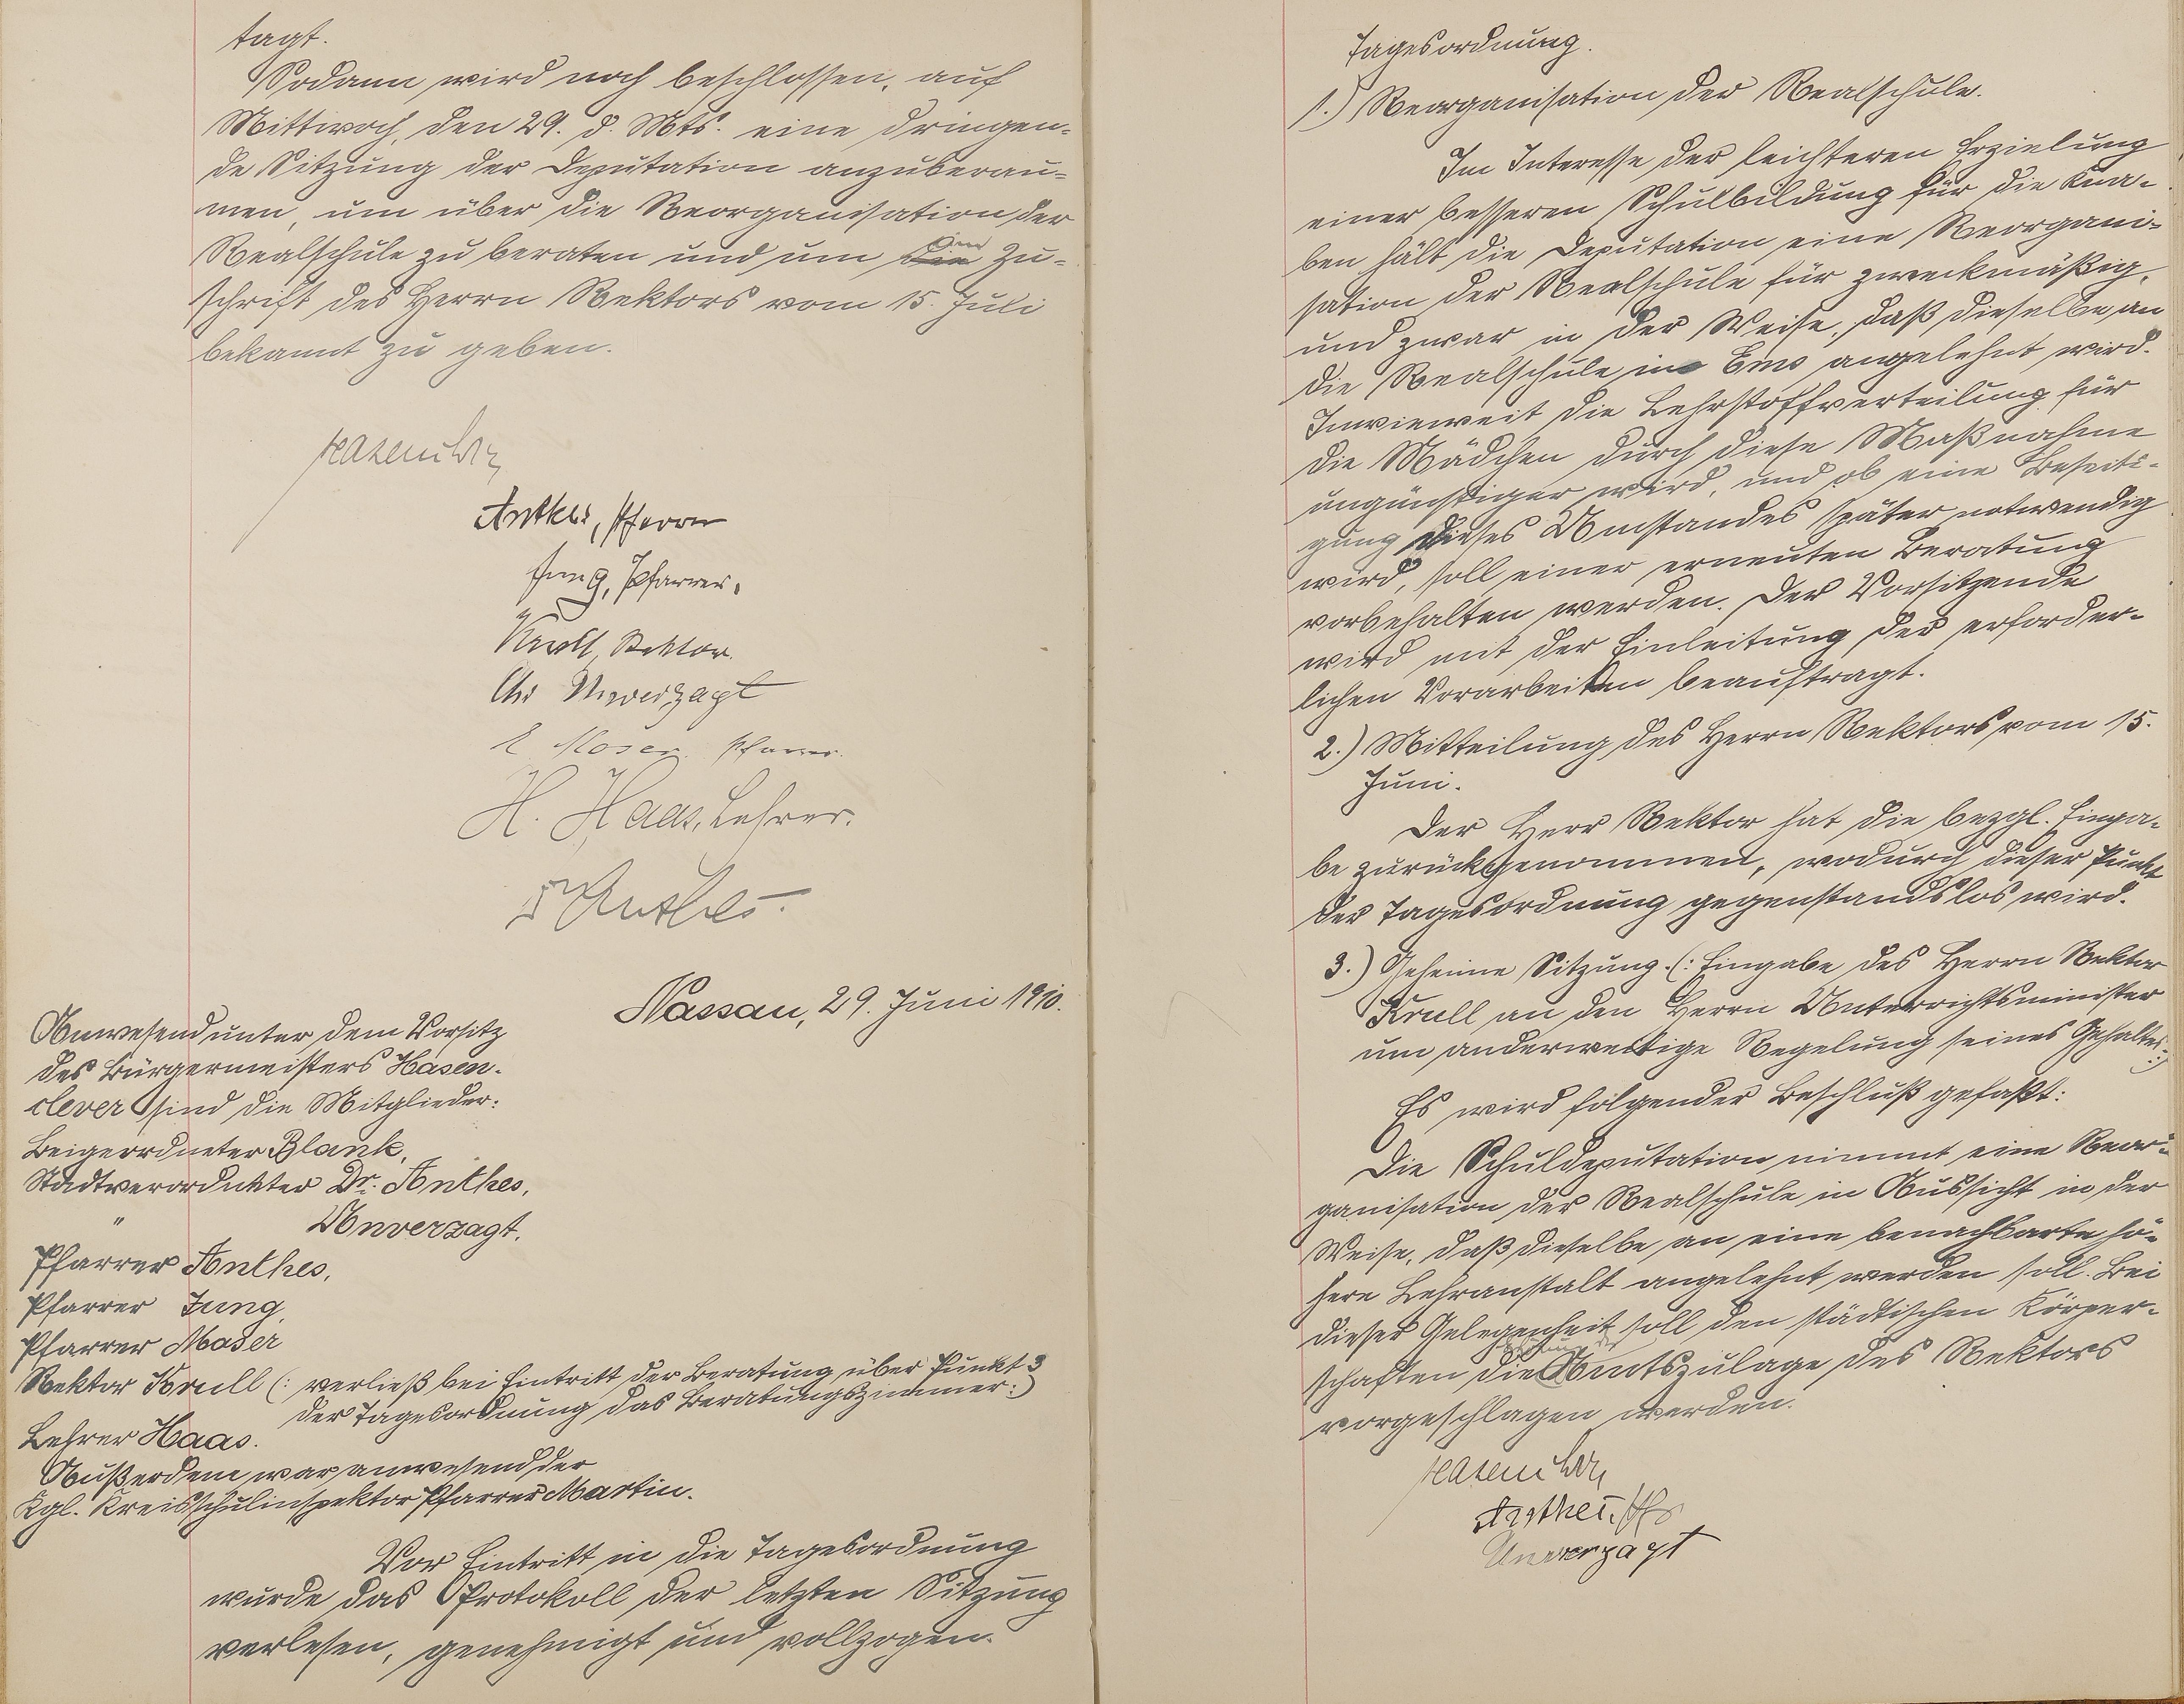 tagt.
Sodann wird noch beschlossen, auf
Mittwoch, den 29. d. Mts. eine dringen-
de Sitzung der Deputation anzuberau-
men, um über die Reorganisation der
Realschule zu beraten und um die Zu-
schrift des Herrn Rektors vom 15. Juli
bekannt zu geben.
Hasenclever
Anthes, Pfarrer
Jung, Pfarrer.
Krull, Rektor.
Chr Unverzagt
E Moser, Pfarrer.
H. Haas, Lehrer.
Dr Anthes.
Nassau, 29. Juni 1910.
Anwesend unter dem Vorsitz
des Bürgermeisters Hasen-
clever sind die Mitglieder:
Beigeordneter Blank,
Stadtverordneter Dr. Anthes,
" Unverzagt,
Pfarrer Anthes,
Pfarrer Jung,
Pfarrer Moser
Rektor Krull (: verließ bei Eintritt der Beratung über Punkt 3
der Tagesordnung das Beratungszimmer :)
Lehrer Haas.
Außerdem war anwesend der
Kgl. Kreisschulinspektor Pfarrer Martin.
Vor Eintritt in die Tagesordnung
wurde das Protokoll der letzten Sitzung
verlesen, genehmigt und vollzogen.
Tagesordnung.
1.) Reorganisation der Realschule.
Im Interesse der leichteren Erzielung
einer besseren Schulbildung für die Kna-
ben hält die Deputation eine Reorgani-
sation der Realschule für zweckmäßig,
und zwar in der Weise, daß dieselbe an
die Realschule in Ems angelehnt wird.
Inwieweit die Lehrstoffverteilung für
die Mädchen durch diese Maßnahme
ungünstiger wird, und ob eine Beseiti-
gung dieses Umstandes später notwendig
wird, soll einer erneuten Beratung
vorbehalten werden. Der Vorsitzende
wird mit der Einleitung der erforder-
lichen Vorarbeiten beauftragt.
2.) Mitteilung des Herrn Rektors vom 15.
Juni.
Der Herr Rektor hat die bezgl. Einga-
be zurückgenommen, wodurch dieser Punkt
der Tagesordnung gegenstandslos wird.
3.) Geheime Sitzung. (: Eingabe des Herrn Rektor
Krull an den Herrn Unterrichtsminister
um anderweitige Regelung seines Gehaltes :)
Es wird folgender Beschluß gefaßt:
Die Schuldeputation nimmt eine Reor-
ganisation der Realschule in Aussicht in der
Weise, daß dieselbe an eine benachbarte hö-
here Lehranstalt angelehnt werden soll. Bei
dieser Gelegenheit soll den städtischen Körper-
schaften die Amtszulage des Rektors
vorgeschlagen werden.
Hasenclever
Anthes, Pfr
Unverzagt